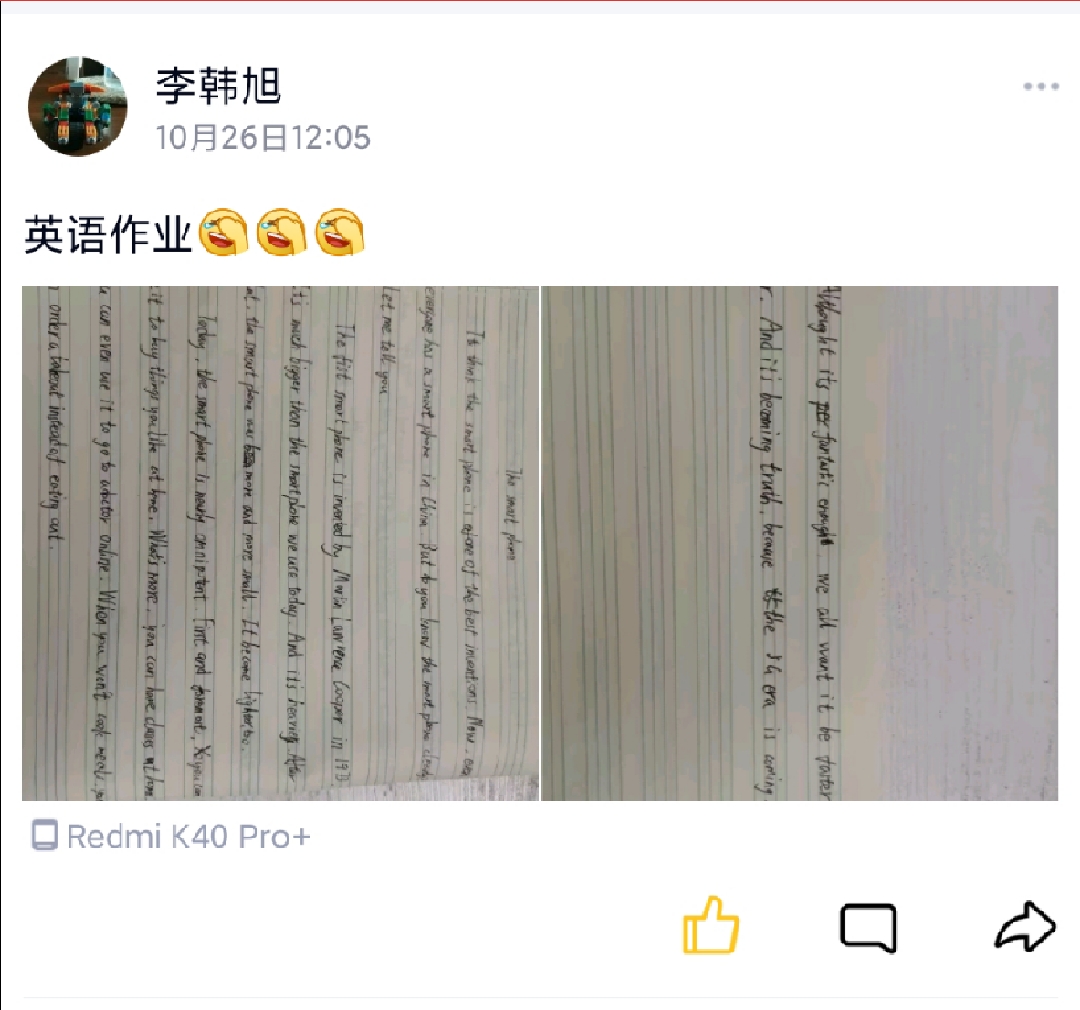 李韩旭
10月26日12:05
英语作业
The smart phone
I think the smart phone is one of the best inventions. Now,
everyone has a smart phone in China. But do you know the smart phone
Let me tell you
The first smart phone is invented by Martin Lawrence Cooper in 197
It's much bigger than the smart phone we use today. And it's heavier. After
at, the smart phone was more and more small. It became lighter too.
Today, the smart phone is nearly omnipotent. First and you can
it to buy things you like at home. What's more, you can have classes at home
u can even use it to go to a doctor online. When you won't cook meals, you
n order a takeout instead of eating out.
Althought it's fantastic enough we all want it be faster
r. And it's becoming truth, because the 5G era is coming.
Redmi K40 Pro+